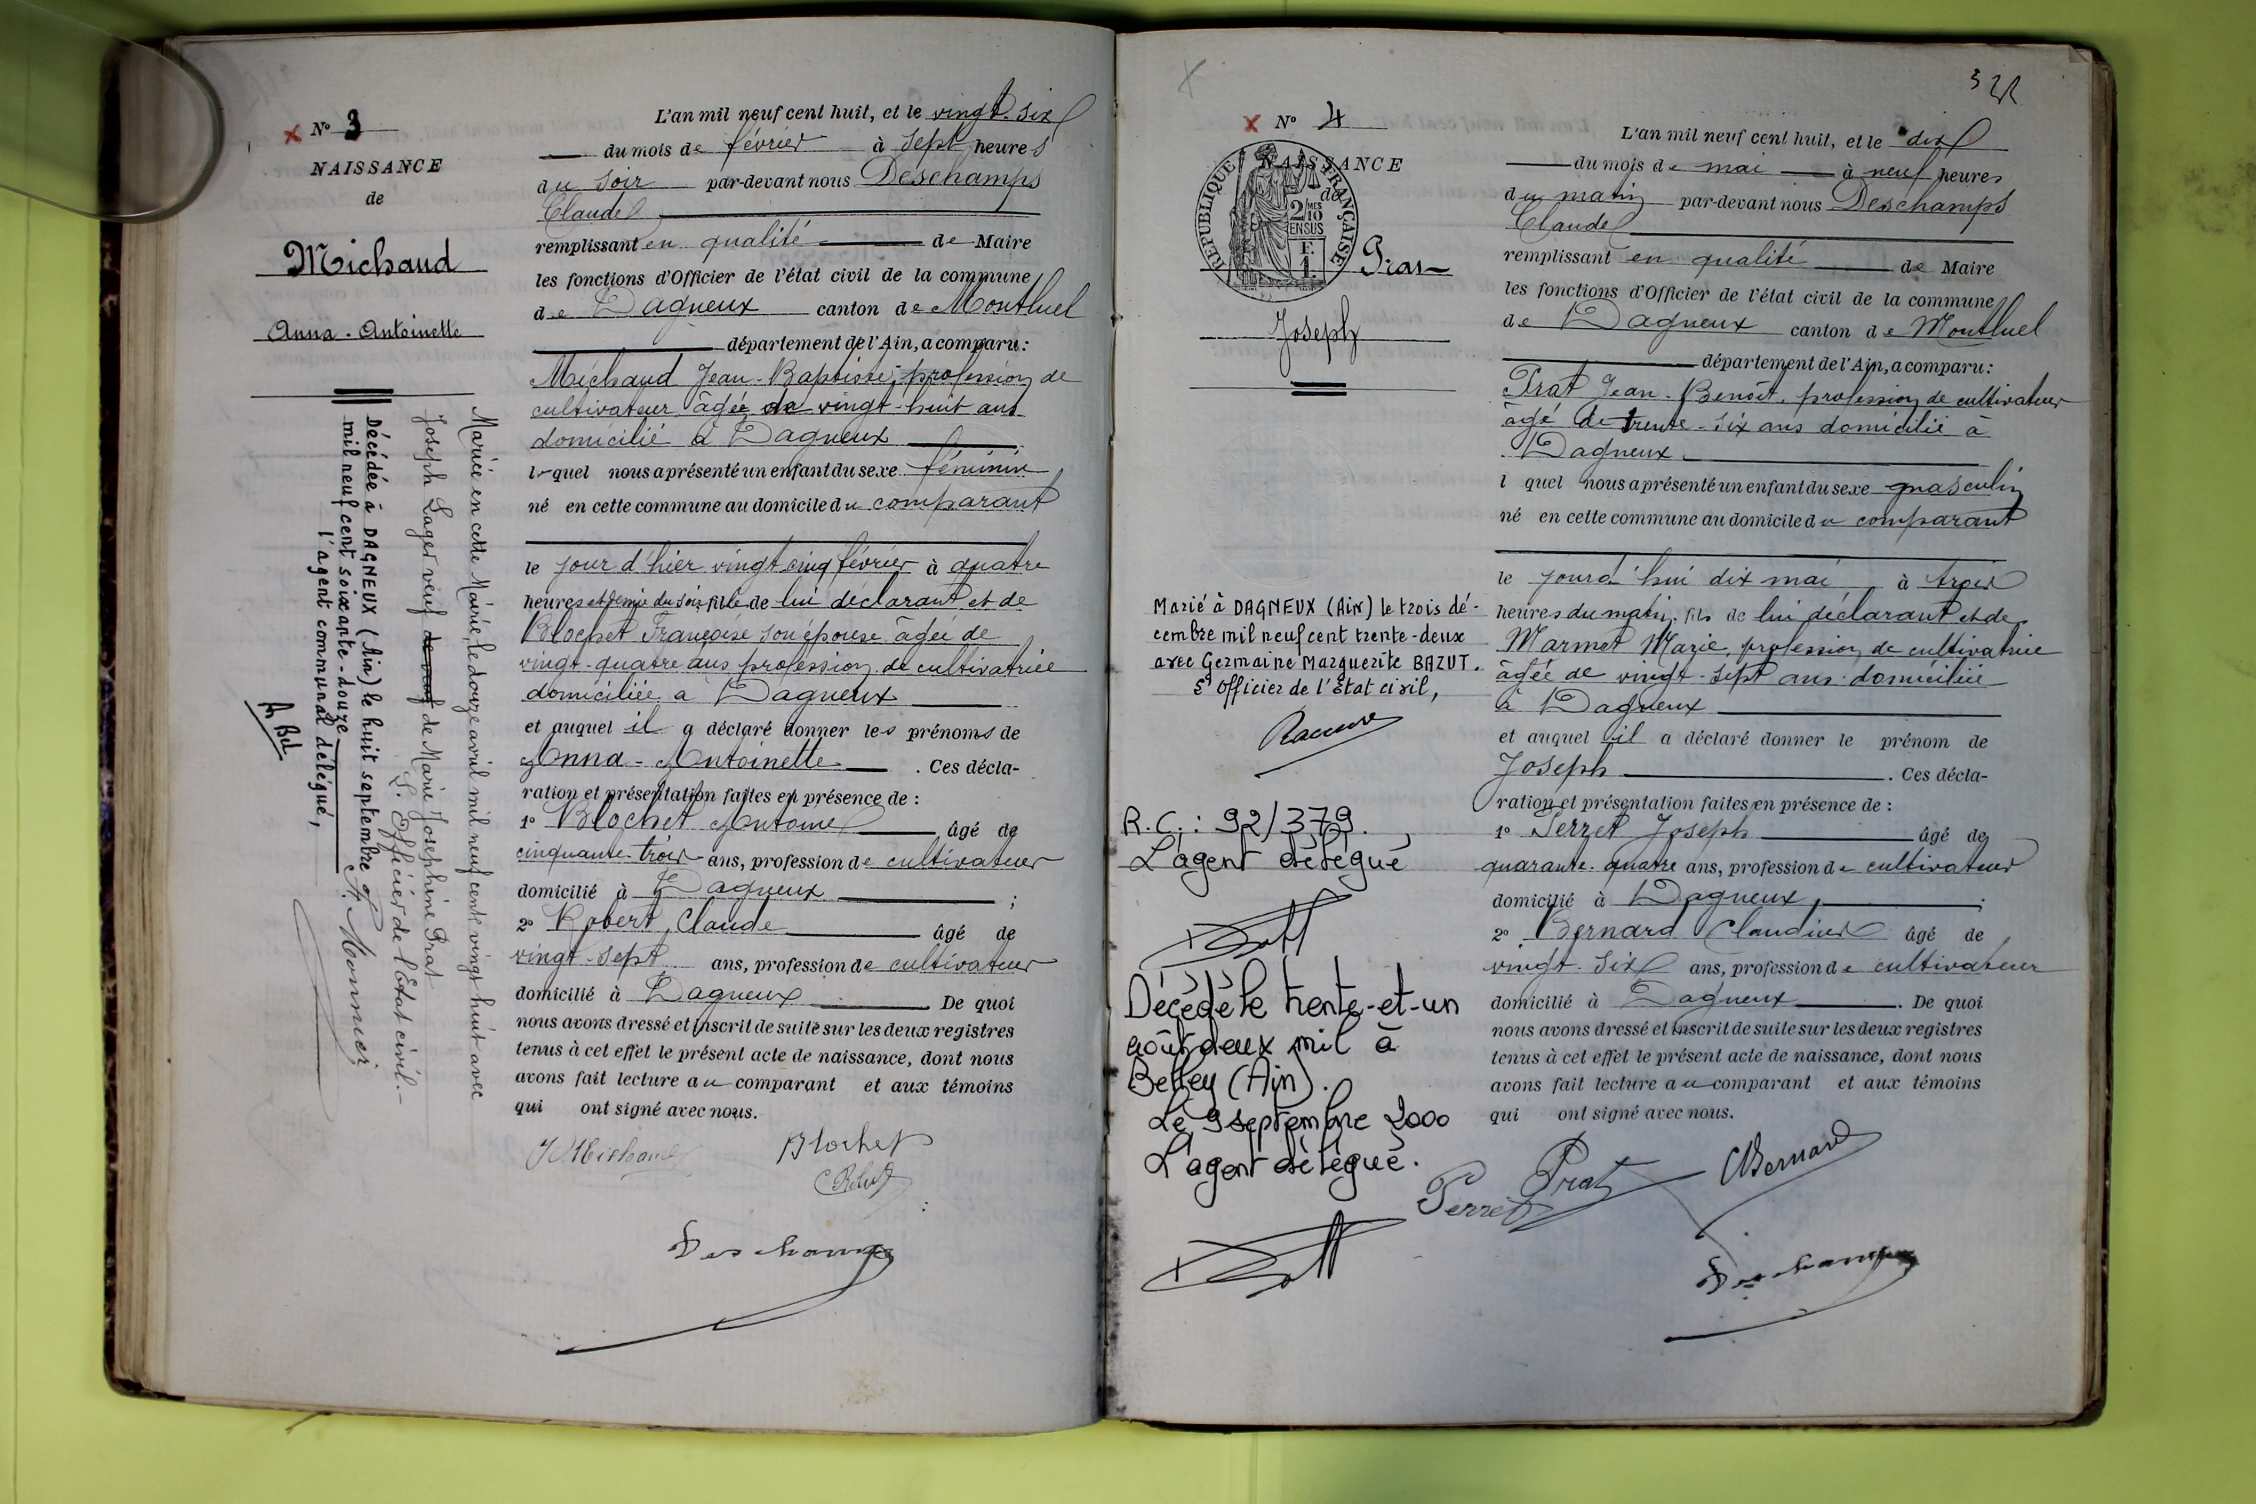 N° 3
NAISSANCE
de
Michaud
Anna-Antoinette
Mariée en cette Mairie, le douze avril mil neuf cent vingt huit avec
Joseph Lager veuf de Marie Joséphine Prat
L'Officier de l'Etat civil.-
A. Monnier
Décédée à DAGNEUX (Ain) le huit septembre
mil neuf cent soixante-douze
l'agent communal délégué,
L'an mil neuf cent huit, et le vingt-six
du mois de février à sept heures
du soir par-devant nous Deschamps
Claude
remplissant en qualité de Maire
les fonctions d'Officier de l'état civil de la commune
de Dagneux canton de Montluel
département de l'Ain, a comparu:
Michaud Jean-Baptiste, profession de
cultivateur âgé de vingt-huit ans
domicilié à Dagneux
lequel nous a présenté un enfant du sexe féminin
né en cette commune au domicile du comparant
le jour d'hier vingt cinq février à quatre
heures et demie du soir fille de lui déclarant et de
Blochet Françoise son épouse âgée de
vingt-quatre ans profession de cultivatrice
domiciliée à Dagneux
et auquel il a déclaré donner les prénoms de
Anna-Antoinette . Ces décla-
ration et présentation faites en présence de :
1° Blochet Antoine âgé de
cinquante-trois ans, profession de cultivateur
domicilié à Dagneux ;
2° Robert Claude âgé de
vingt-sept ans, profession de cultivateur
domicilié à Dagneux De quoi
nous avons dressé et inscrit de suite sur les deux registres
tenus à cet effet le présent acte de naissance, dont nous
avons fait lecture au comparant et aux témoins
qui ont signé avec nous.
J Michaud Blochet
C Robert
Deschamps
32
N° 4
NAISSANCE
de
REPUBLIQUE FRANÇAISE
2/10 MES
EN SUS
F.
1.
Prat
Joseph
Marié à DAGNEUX (Ain) le trois dé-
cembre mil neuf cent trente-deux
avec Germaine Marguerite BAZUT.
L'Officier de l'Etat civil,
R.C.: 92/379.
L'agent délégué
Décédé le trente-et-un
août deux mil à
Belley (Ain).
Le 9 septembre 2000
L'agent délégué.
L'an mil neuf cent huit, et le dix
du mois de mai à neuf heures
du matin par-devant nous Deschamps
Claude
remplissant en qualité de Maire
les fonctions d'Officier de l'état civil de la commune
de Dagneux canton de Montluel
département de l'Ain, a comparu:
Prat Jean-Benoît, profession de cultivateur
âgé de trente-six ans domicilié à
Dagneux
l quel nous a présenté un enfant du sexe masculin
né en cette commune au domicile du comparant
le jourd'hui dix mai à trois
heures du matin, fils de lui déclarant et de
Marmet Marie, profession de cultivatrice
âgée de vingt-sept ans domiciliée
à Dagneux
et auquel il a déclaré donner le prénom de
Joseph . Ces décla-
ration et présentation faites en présence de :
1° Perret Joseph âgé de
quarante-quatre ans, profession de cultivateur
domicilié à Dagneux ;
2° Bernard Claudius âgé de
vingt-six ans, profession de cultivateur
domicilié à Dagneux . De quoi
nous avons dressé et inscrit de suite sur les deux registres
tenus à cet effet le présent acte de naissance, dont nous
avons fait lecture au comparant et aux témoins
qui ont signé avec nous.
Perret Prat CBernard
Deschamps